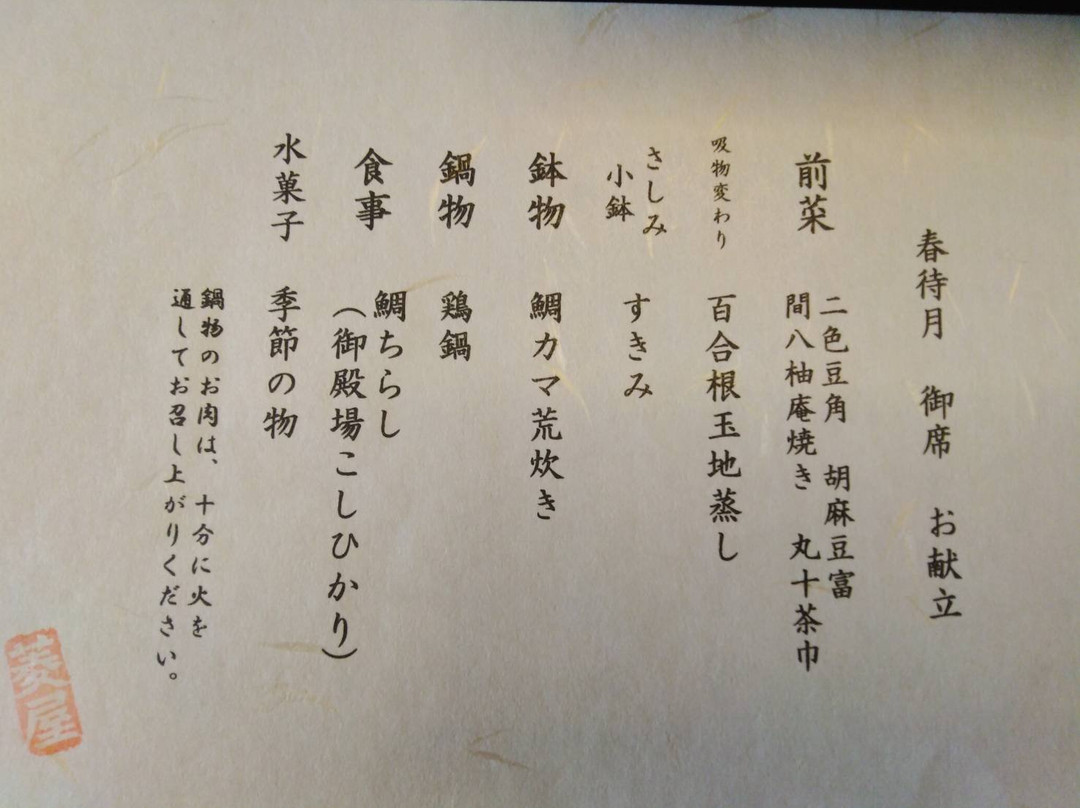 春待月　御席　お献立
前菜
二色豆角　胡麻豆富
間八柚庵焼き　丸十茶巾
吸物変わり　百合根玉地蒸し
さしみ
小鉢
すきみ
鉢物　鯛カマ荒炊き
鍋物　鶏鍋
食事
鯛ちらし
（御殿場こしひかり）
水菓子　季節の物
鍋物のお肉は、十分に火を
通してお召し上がりください。
菱屋